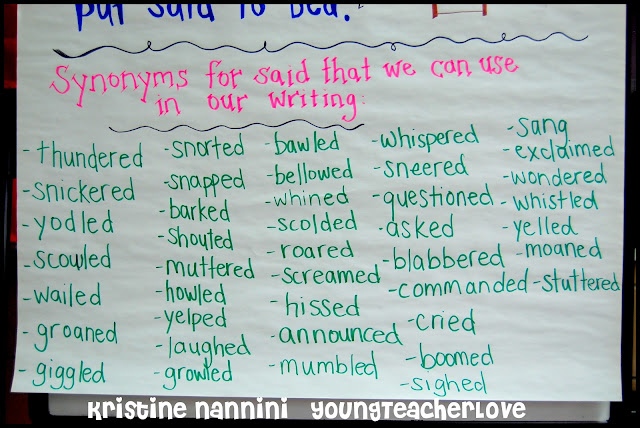 put said to bed.
Synonyms for said that we can use
in our writing:
-thundered
-snickered
-yodled
-scowled
-wailed
-groaned
-giggled
-snorted
-snapped
-barked
-shouted
-muttered
-howled
-yelped
-laughed
-growled
-bawled
-bellowed
-whined
-scolded
-roared
-screamed
-hissed
-announced
-mumbled
-whispered
-sneered
-questioned
-asked
-blabbered
-commanded
-cried
-boomed
-sighed
-sang
-exclaimed
-wondered
-whistled
-yelled
-moaned
-stuttered
Kristine Nannini YoungTeacherLove